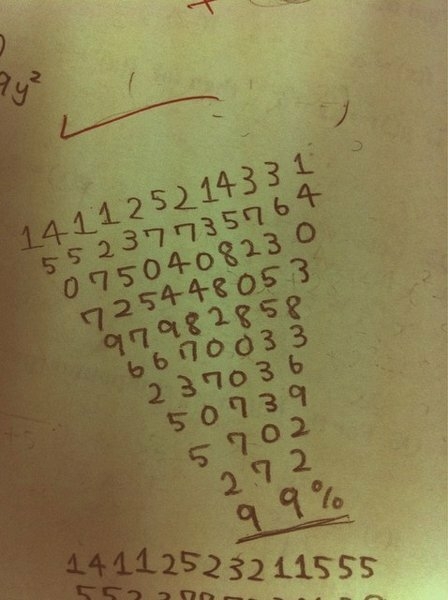 9y²
141125214331
55237735764
0750408230
725448053
97982858
6670033
237036
50739
5702
272
99%
14112523211555